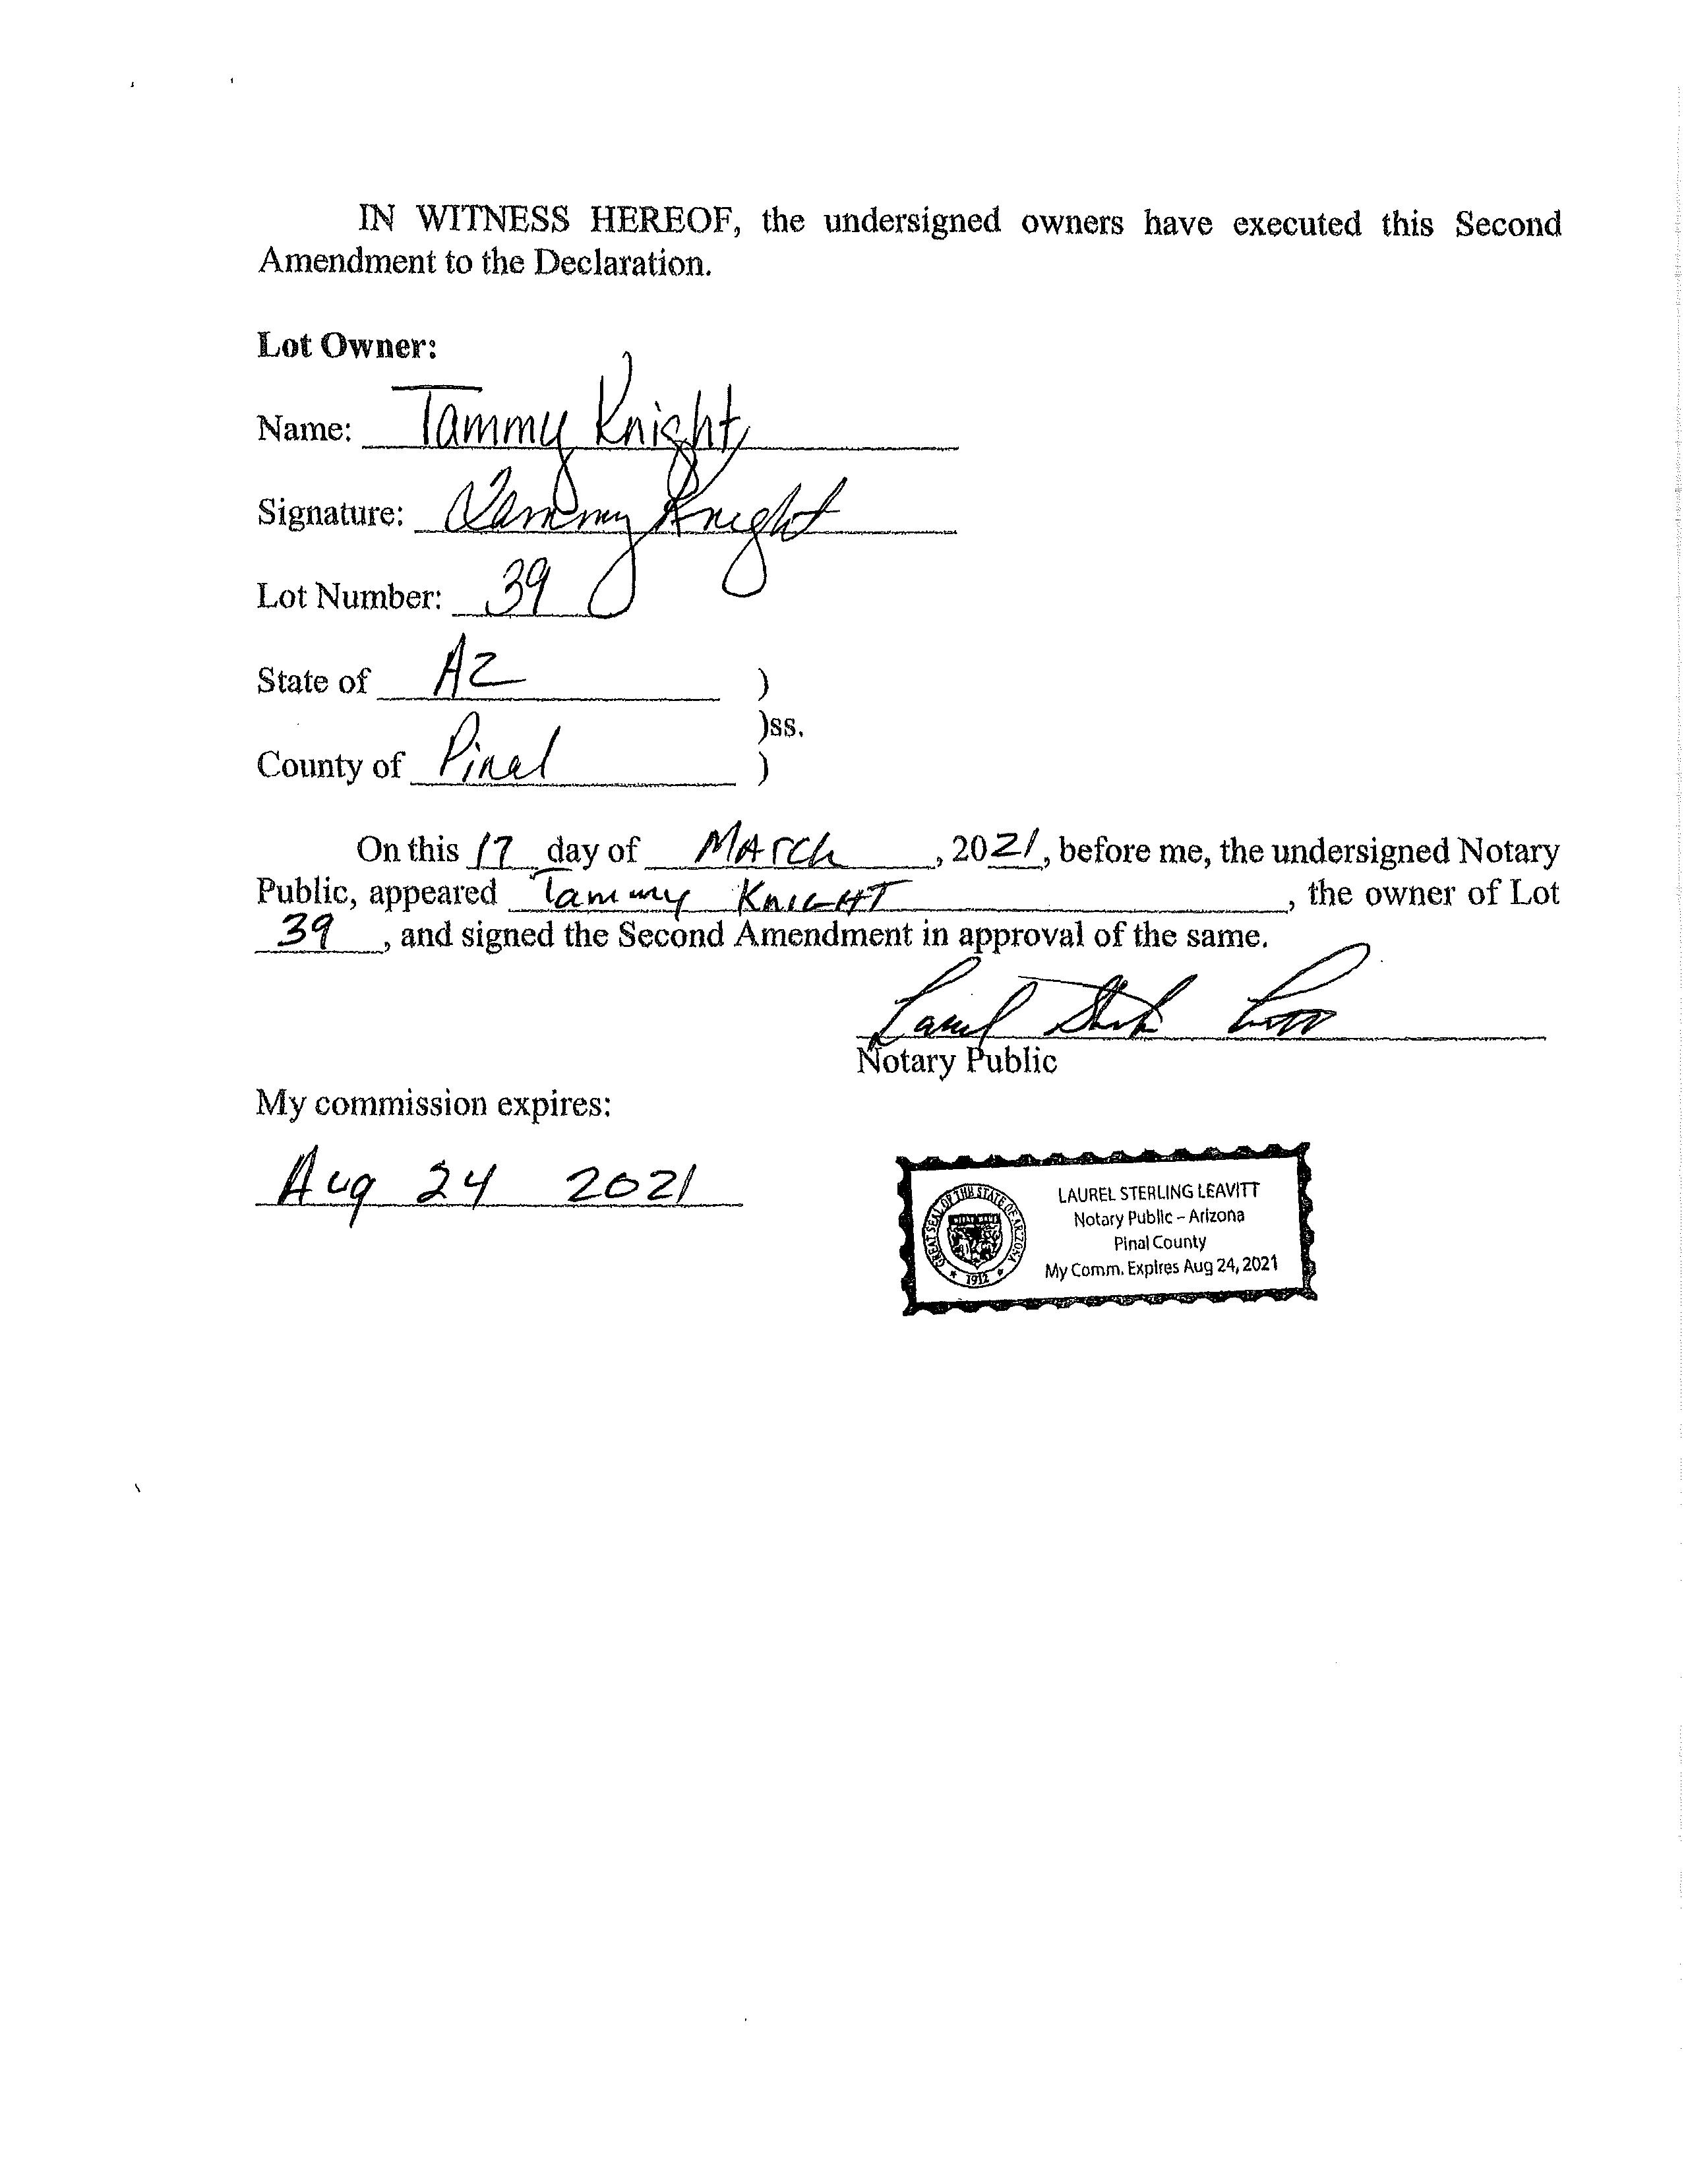 IN WITNESS HEREOF, the undersigned owners have executed this Second
Amendment to the Declaration.
Lot Owner:
Name: Tammy Knight
Signature: Tammy Knight
Lot Number: 39
State of AZ )
)ss.
County of Pinal )
On this 17 day of March, 2021, before me, the undersigned Notary
Public, appeared Tammy KNIGHT, the owner of Lot
39, and signed the Second Amendment in approval of the same.
Notary Public
My commission expires:
Aug 24 2021
GREAT SEAL OF THE STATE OF ARIZONA
1912
LAUREL STERLING LEAVITT
Notary Public – Arizona
Pinal County
My Comm. Expires Aug 24, 2021